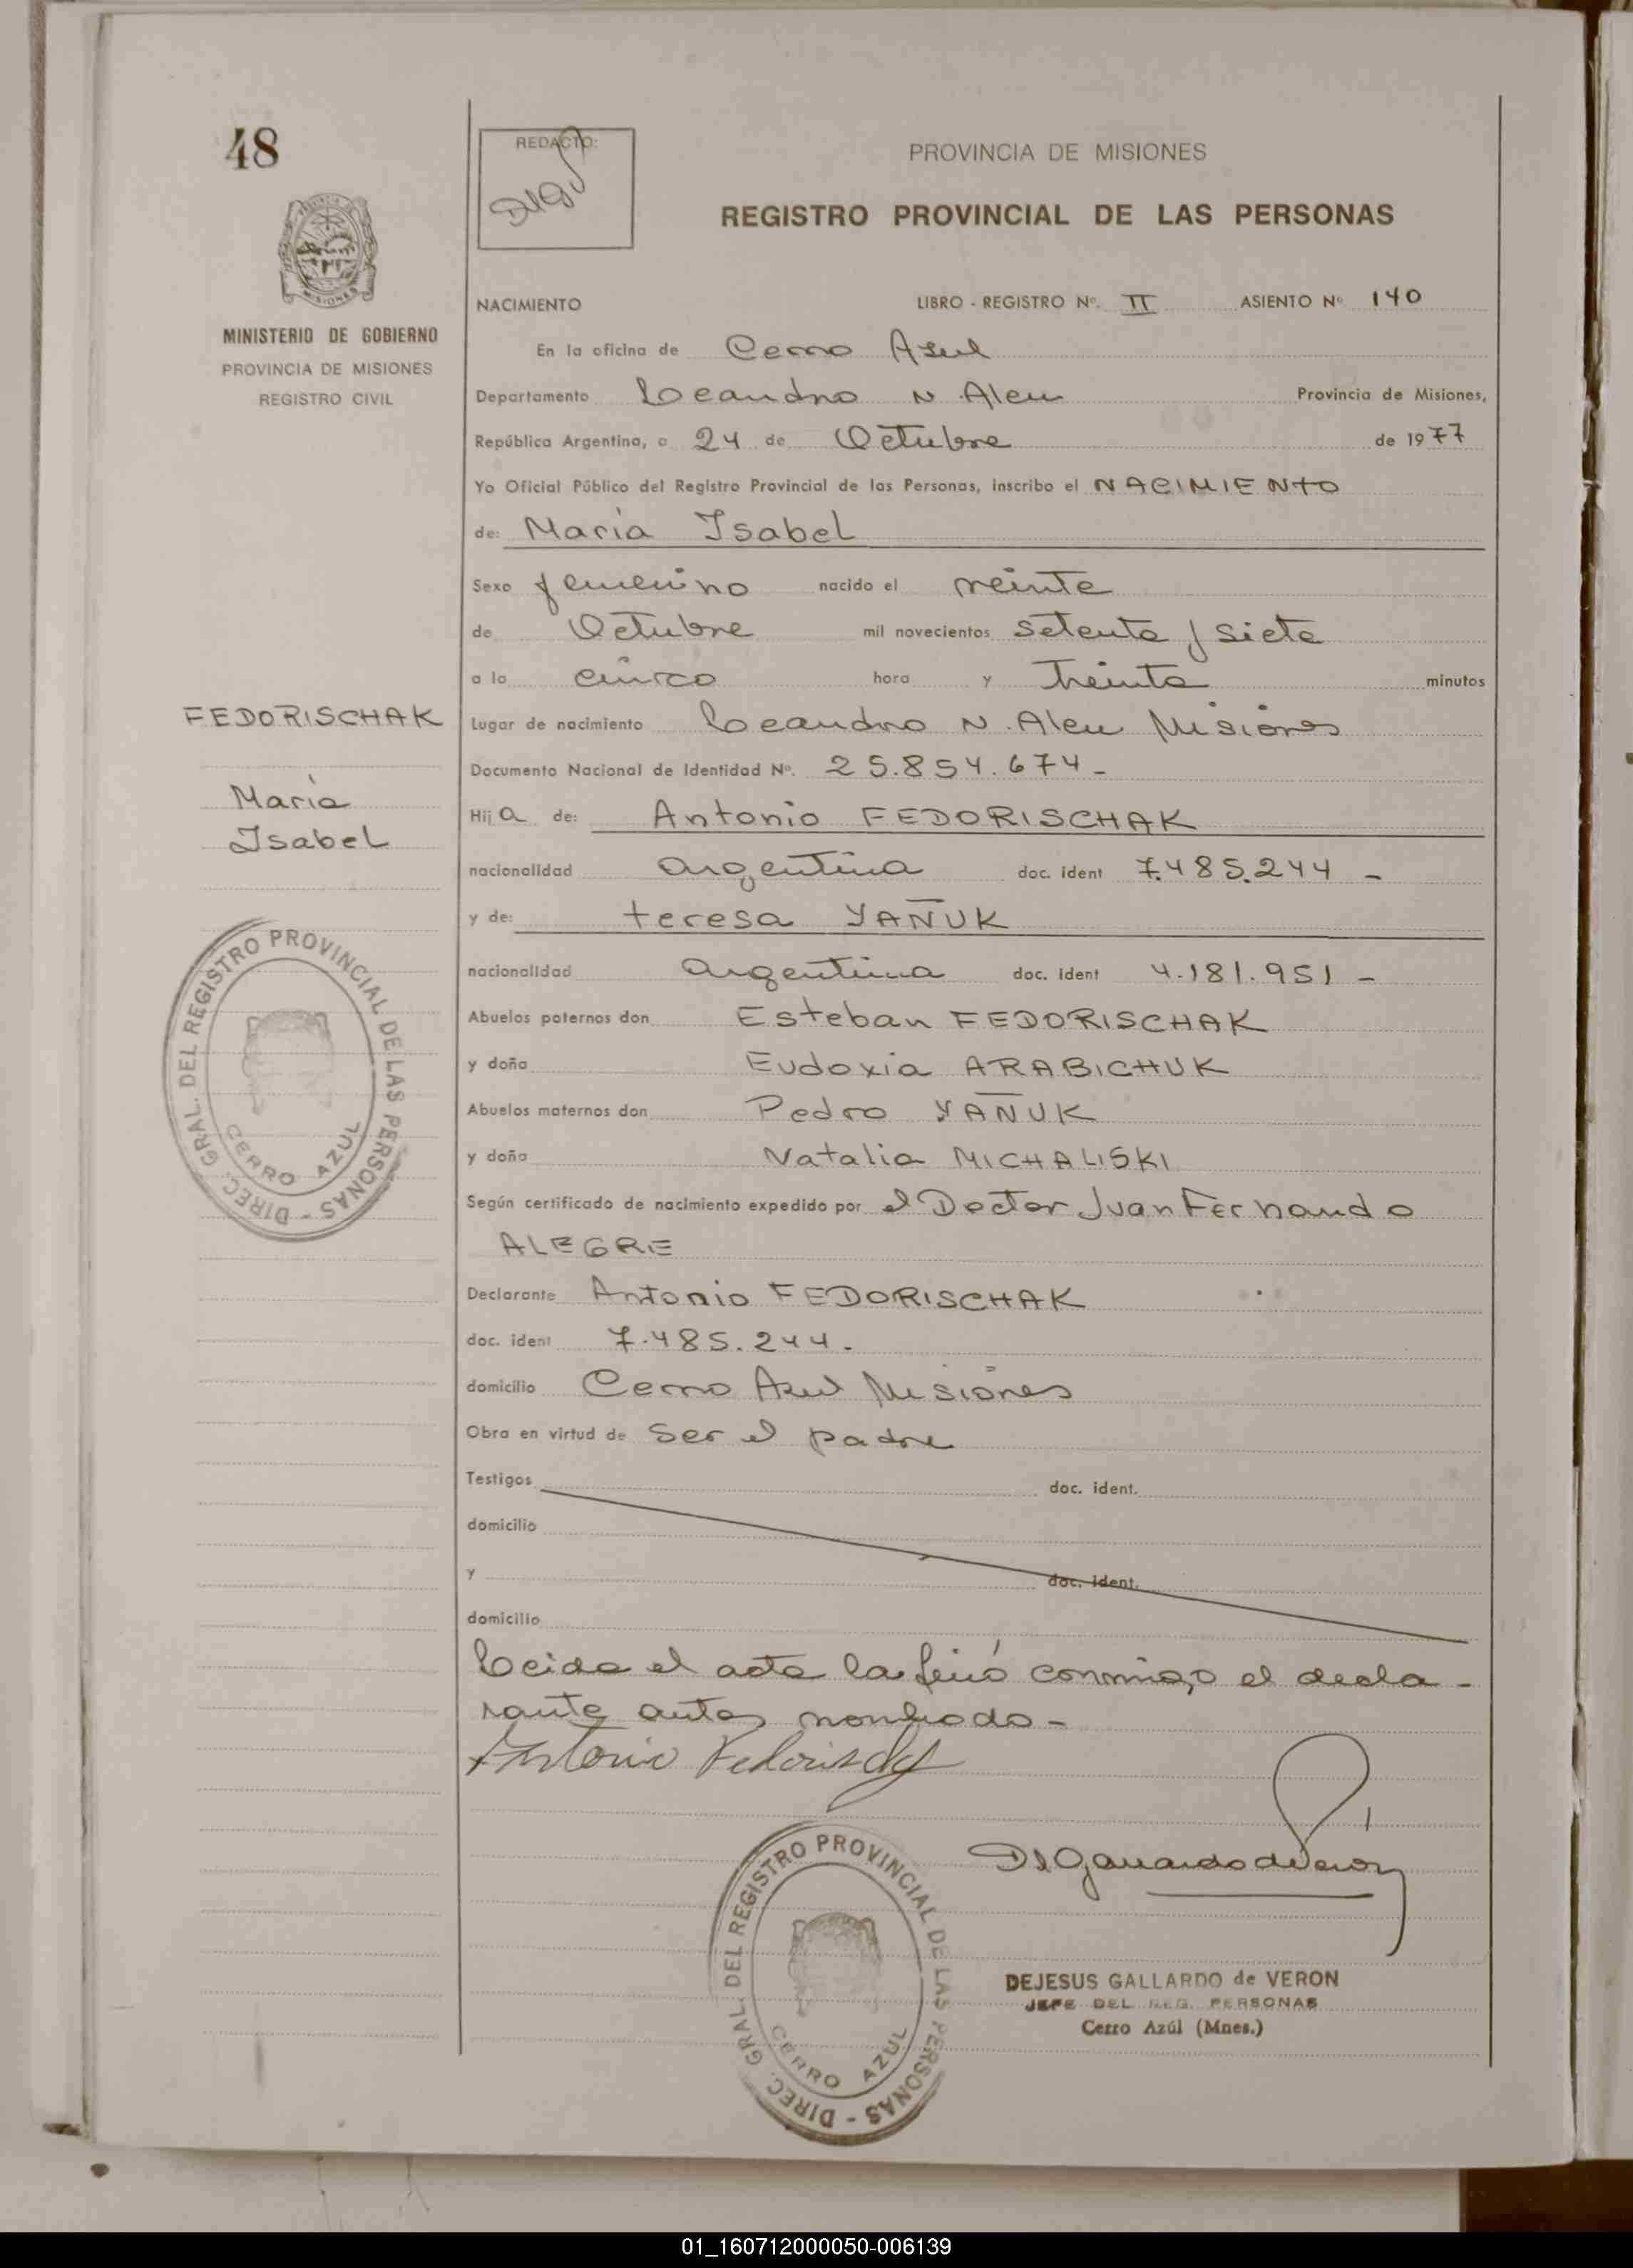 48
MISIONES
MINISTERIO DE GOBIERNO
PROVINCIA DE MISIONES
REGISTRO CIVIL
REDACTO:
PROVINCIA DE MISIONES
REGISTRO PROVINCIAL DE LAS PERSONAS
NACIMIENTO LIBRO - REGISTRO Nº. II ASIENTO Nº 140
En la oficina de Cerro Azul
Departamento Leandro N. Alem Provincia de Misiones,
República Argentina, a 24 de Octubre de 1977
Yo Oficial Público del Registro Provincial de las Personas, inscribo el NACIMIENTO
de: María Isabel
Sexo femenino nacido el veinte
de Octubre mil novecientos setenta y siete
a la cinco hora y treinta minutos
Lugar de nacimiento Leandro N. Alem Misiones
Documento Nacional de Identidad Nº. 25.854.674-
Hija de: Antonio FEDORISCHAK
nacionalidad argentina doc. ident 7.485.244 -
y de: teresa YAÑUK
nacionalidad argentina doc. ident 4.181.951 -
Abuelos paternos don Esteban FEDORISCHAK
y doña Eudoxia ARABICHUK
Abuelos maternos don Pedro YAÑUK
y doña Natalia MICHALISKI
Según certificado de nacimiento expedido por el Doctor Juan Fernando
ALEGRE
Declarante Antonio FEDORISCHAK
doc. ident 7.485.244.
domicilio Cerro Azul Misiones
Obra en virtud de ser el padre
Testigos doc. ident.
domicilio
y doc. ident.
domicilio
Leida el acta la firmó conmigo el decla-
rante antes nombrado-
Antonio Fedorischak
FEDORISCHAK
María
Isabel
DIREC. GRAL. DEL REGISTRO PROVINCIAL DE LAS PERSONAS -
CERRO AZUL
DIREC. GRAL. DEL REGISTRO PROVINCIAL DE LAS PERSONAS -
CERRO AZUL
DEJESUS GALLARDO de VERON
JEFE DEL REG. PERSONAS
Cerro Azúl (Mnes.)
01_160712000050-006139